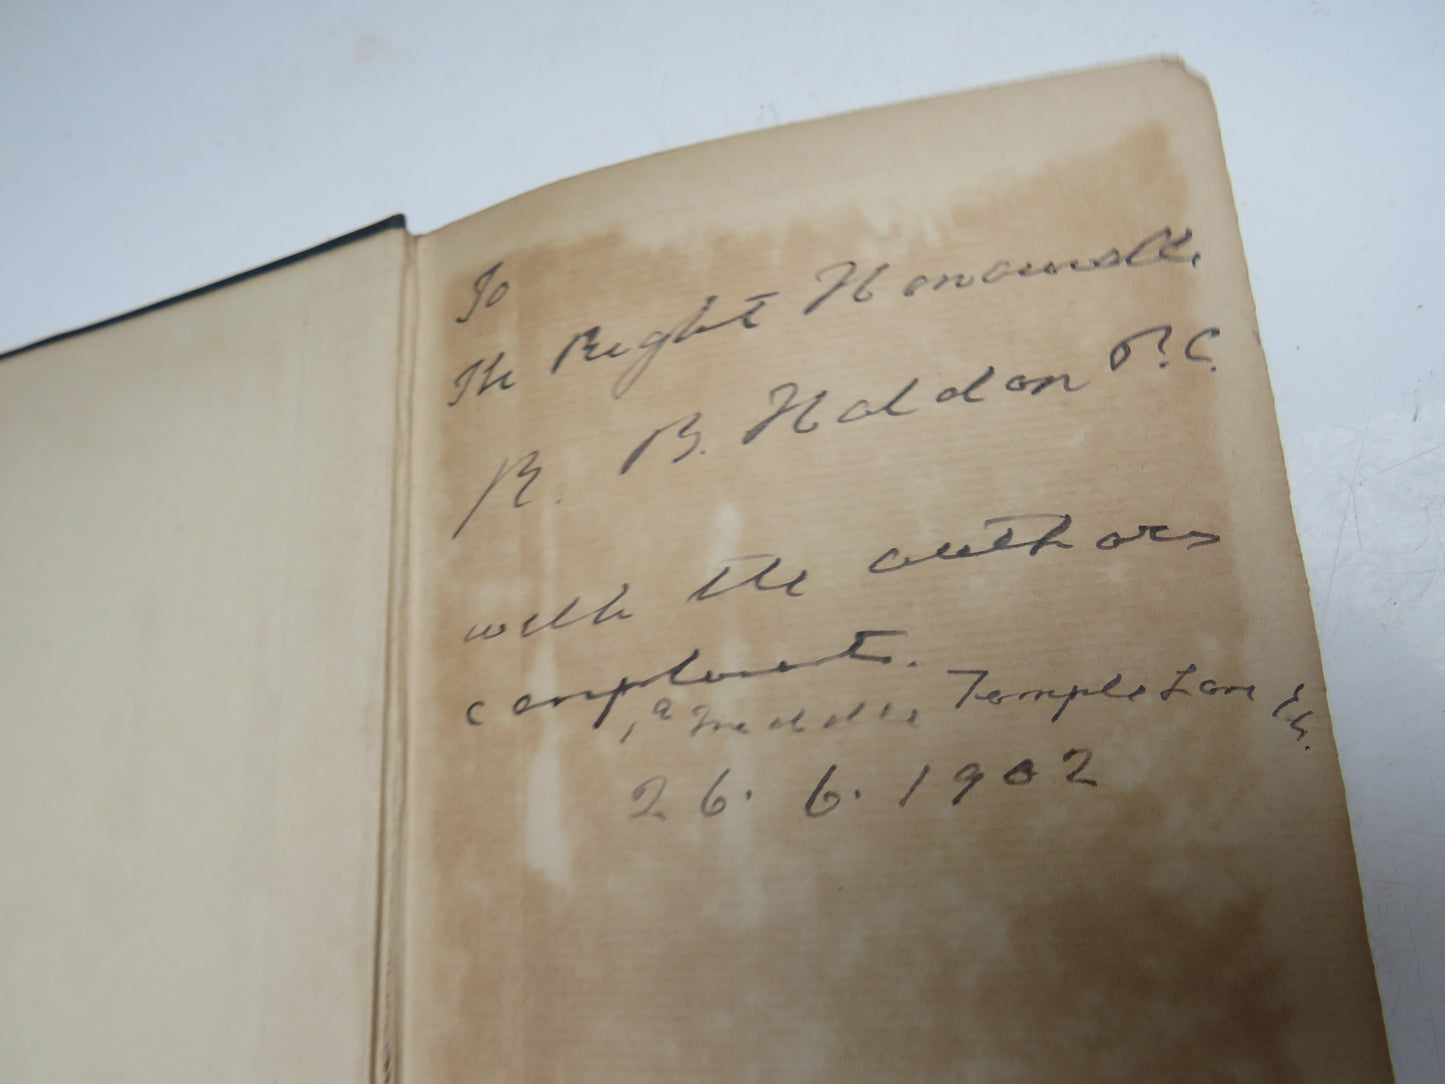 To
The Right Honourable
R. B. Haldon P.C.
with the authors
compliments.
1a Middle Temple Lane
26. 6. 1902